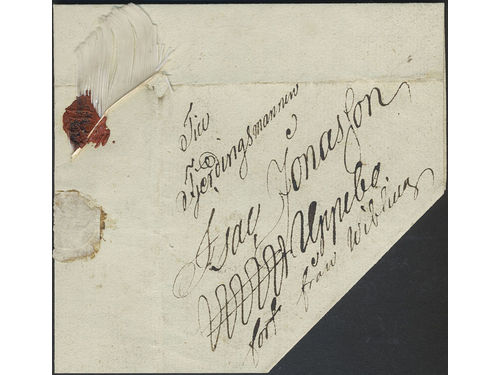 Till
Fjerdingsmannen
Isac Jonasson
Uppebo
fort från Wibling